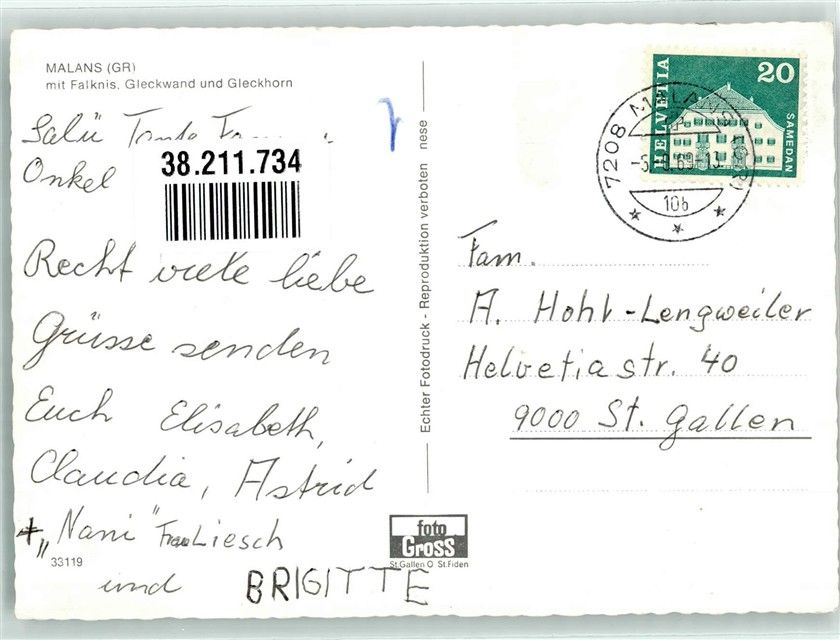 MALANS (GR)
mit Falknis, Gleckwand und Gleckhorn
Salü Tante
Onkel
38.211.734
Recht viele liebe
Grüsse senden
Euch Elisabeth,
Claudia, Astrid
+ "Nani" Frau Liesch
33119
und BRIGITTE
Echter Fotodruck - Reproduktion verboten nese
foto
Gross
St.Gallen O St.Fiden
HELVETIA
20
SAMEDAN
7208 MALANS (GR)
10b
Fam.
A. Hohl-Lengweiler
Helvetiastr. 40
9000 St. Gallen